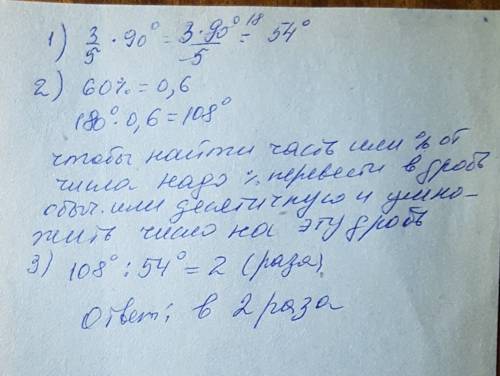 1) 3/5 · 90° = 3·90°/5 18 = 54°
2) 60% = 0,6
180° · 0,6 = 108°
чтобы найти часть или % от
числа надо % перевести в дробь
обыч. или десятичную и умно-
жить число на эту дробь
3) 108° : 54° = 2 (раза)
Ответ: в 2 раза